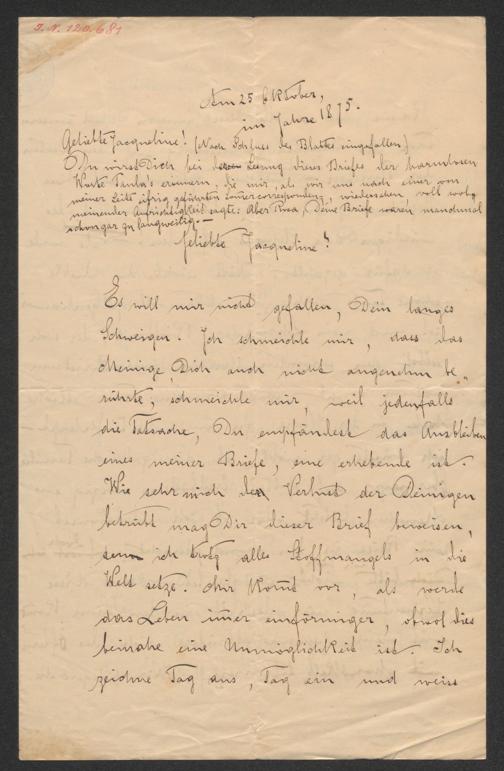 J. N. 120.681
Am 25 Oktober,
im Jahre 1875.
Geliebte Jacqueline! (Nach Schluss des Blattes eingefallen)
Du wirst Dich bei Lesung dieses Briefes der harmlosen
Worte Paula's erinnern, die mir, als wir uns nach einer von
meiner Seite eifrig geführten Sommercorrespondenz, wiedersehen voll wohl
meinender Aufrichtigkeit sagte: Aber Rosa, Deine Briefe waren manchmal
schon gar zu langweilig. —
Geliebte Jacqueline!
Es will mir nicht gefallen, Dein langes
Schweigen. Ich schmeichle mir, dass das
Meinige, Dich auch nicht angenehm be„
rührte, schmeichle mir, weil jedenfalls
die Tatsache, Du empfändest das Ausbleiben
eines meiner Briefe, eine erhebende ist.
Wie sehr mich der Verlust der Deinigen
betrübt mag Dir dieser Brief beweisen,
ich trotz alles Stoffmangels in die
Welt setze. Mir kom̅t vor, als werde
das Leben im̅er einförmiger, obwol dies
beinahe eine Unmöglichkeit ist. Ich
zeichne Tag aus, Tag ein und weiss